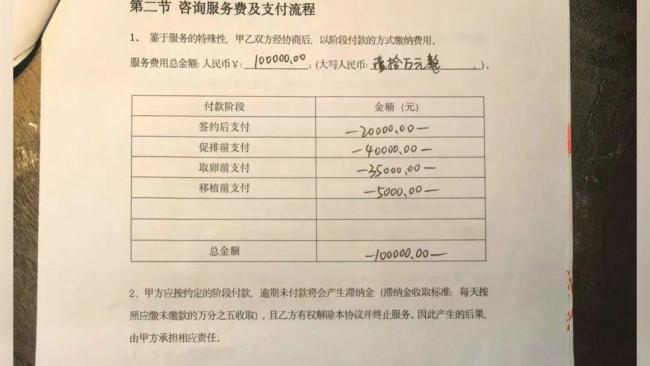 第二节 咨询服务费及支付流程
1、 鉴于服务的特殊性, 甲乙双方经协商后, 以阶段付款的方式缴纳费用。
服务费用总金额: 人民币￥: 100000.00 ; (大写人民币: 壹拾万元整 . )。
付款阶段 金额（元）
签约后支付 —20000.00—
促排前支付 —40000.00—
取卵前支付 —35000.00—
移植前支付 —5000.00—
总金额 —100000.00—
2、甲方应按约定的阶段付款, 逾期未付款将会产生滞纳金（滞纳金收取标准: 每天按
照应缴未缴款的万分之五收取）, 且乙方有权解除本协议并终止服务。因此产生的后果,
由甲方承担相应责任。